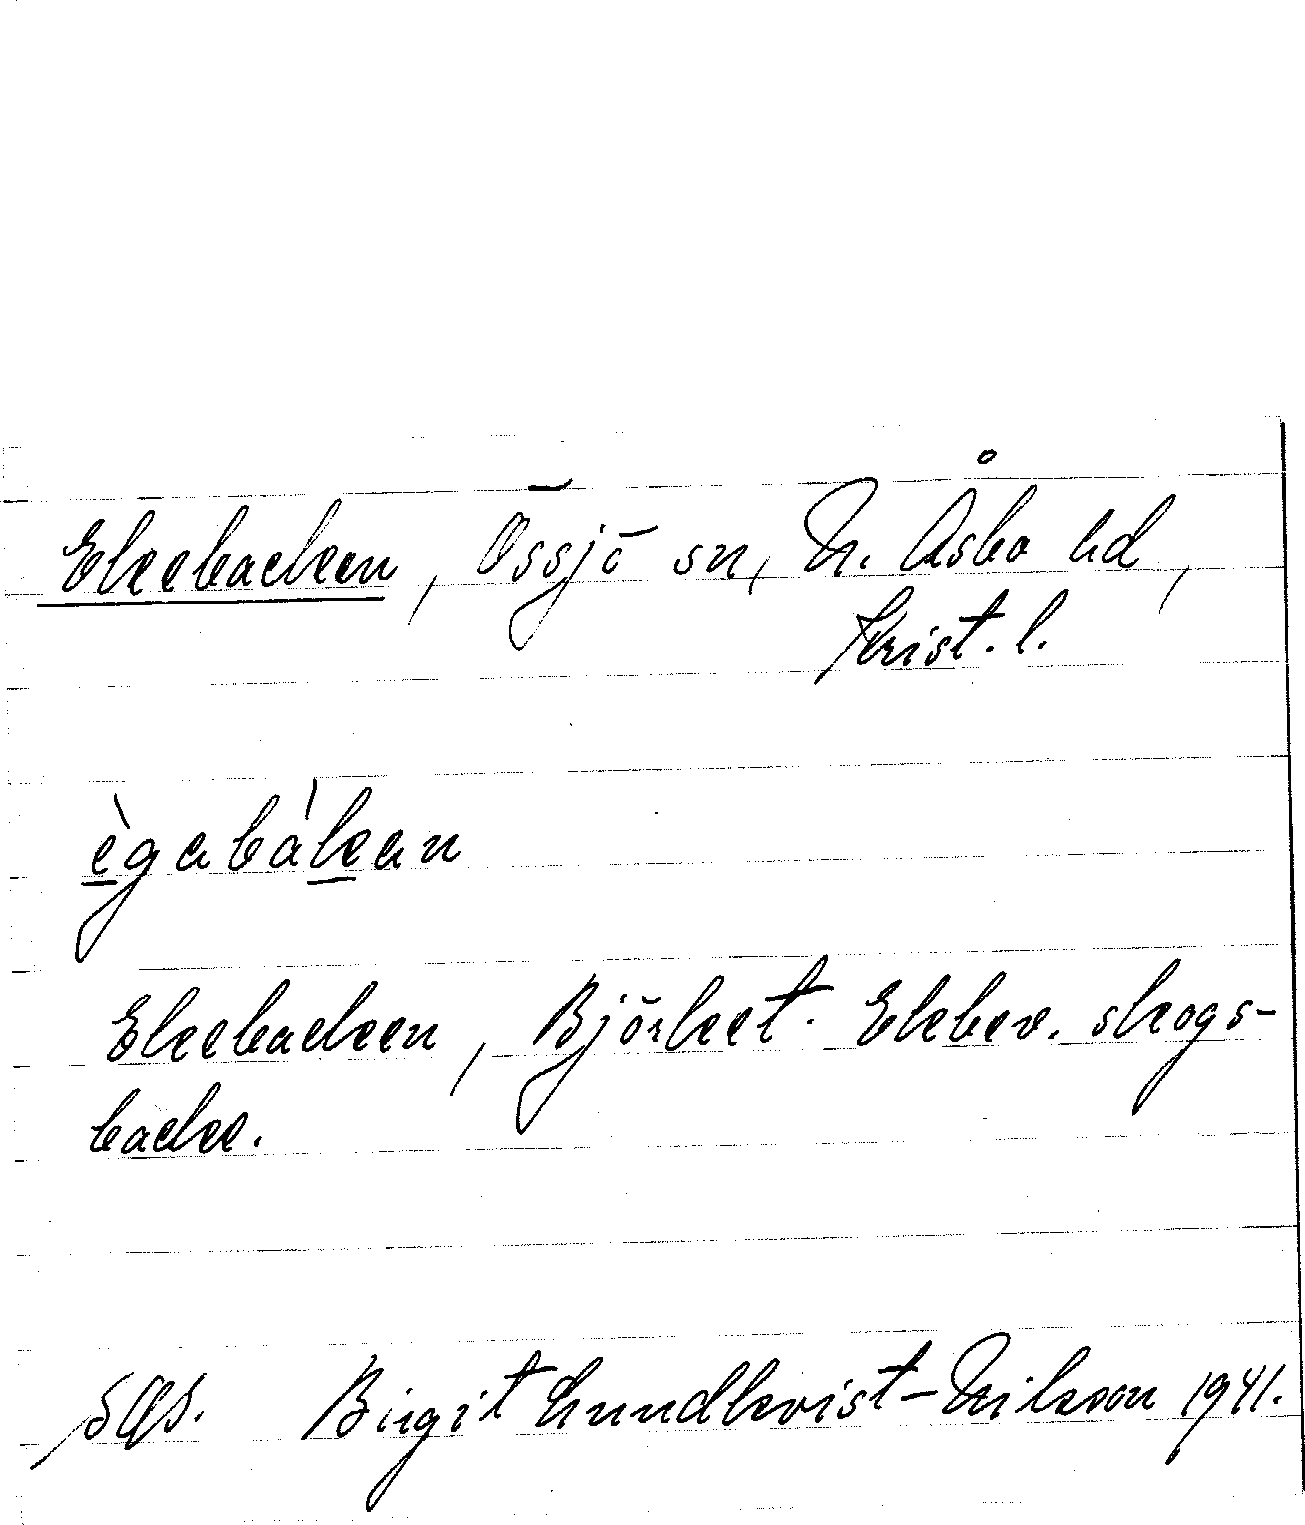 Ekebacken, Össjö sn, N. Åsbo hd,
Krist. l.
ègabàkan
Ekebacken, Björket. Ekbev. skogs-
backe.
SOS. Birgit Lundkvist-Nilsson 1941.